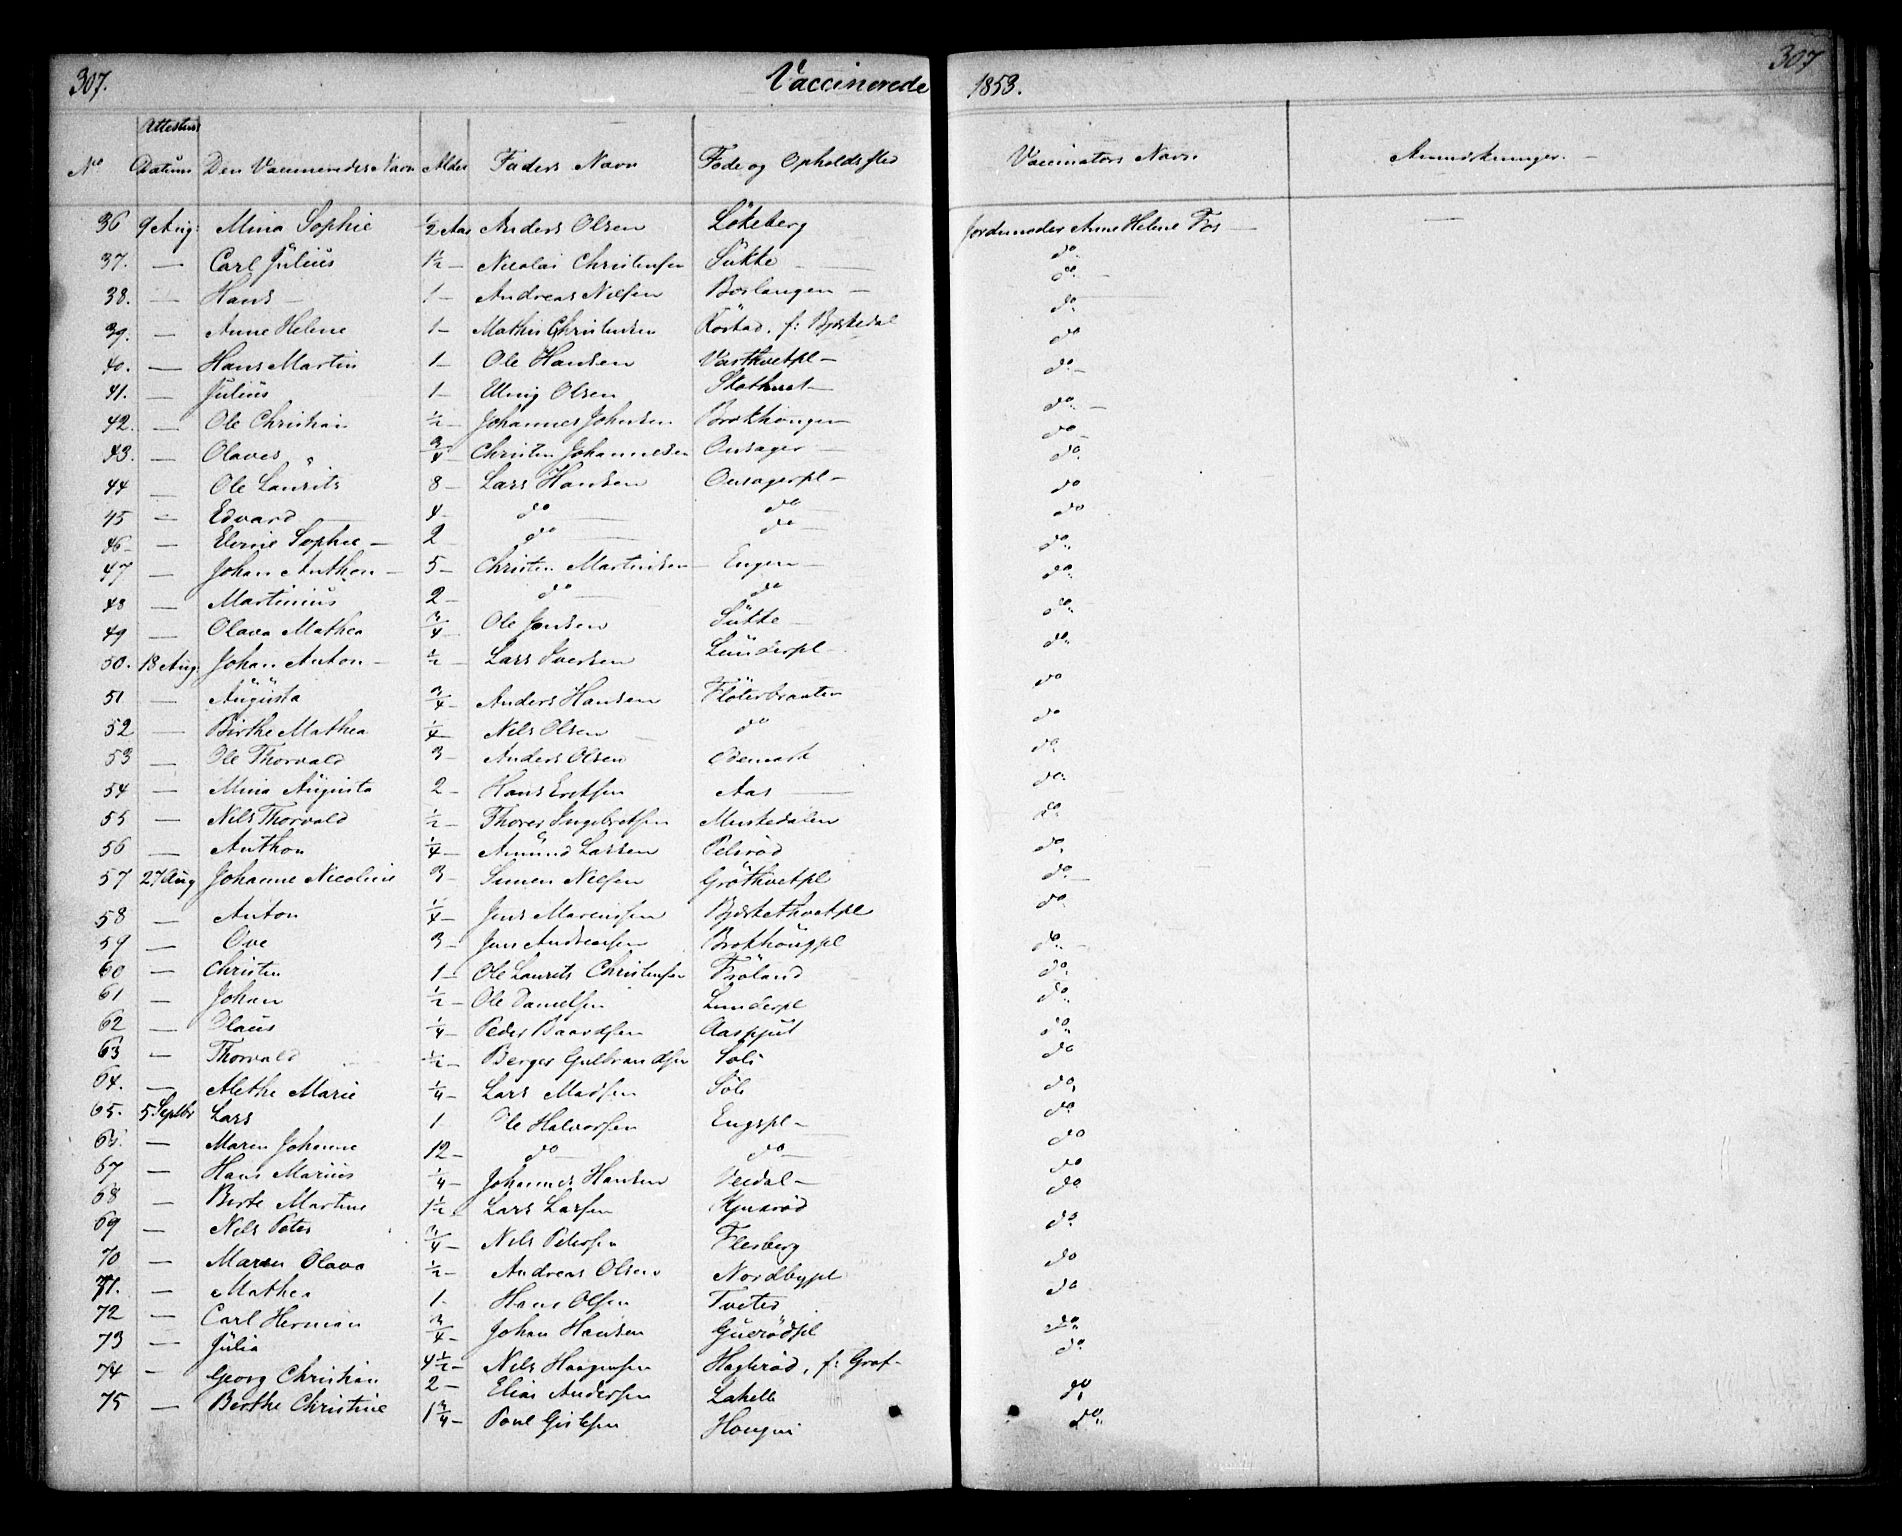 307. Vaccinerede 1853. 307
No Attestens Datum Den Vaccineredes Navn Alder Faders Navn Föde og Opholdssted Vaccinators Navn Anmerkninger.
36 9 Aug: Mina Sophie ½ Aar Anders Olsen Lökeberg Jordemoder Anne Helene Fos —
37. — Carl Julius 1½ — Nicolai Christensen Sükke — do
38. — Hans — 1 — Andreas Nilsen Boslangen — do —
39. — Anne Helene 1 — Mathis Christensen Röstad, f: Bjerkedal do
40. — Hans Martin 1 — Ole Hansen Vasthvetpl — do
41. — Julius 1 — Elling Olsen Skothvet — do —
42. — Ole Christian ½ — Johannes Johnsen Brekhongen — do —
43. — Olaves ¾ — Christen Johannesen Onsager — do —
44 — Ole Laurits 8 — Lars Hansen Onsagerpl — do
45 — Edvard — 4 — do — do — do
46 — Elvine Sophie — 2 — do — do — do
47 — Johan Anthon — 5 — Christen Martinsen — Engen — do
48 — Martinius 2 — do — do do
49 — Olava Mathea ¾ — Ole Jensen Sükke — do
50. 18 Aug: Johan Anton — ½ — Lars Iversen Lünderpl — do
51 — Augusta ¾ — Anders Hansen Flöterbraaten do
52 — Birthe Mathea ¼ — Nils Olsen — do do
53 — Ole Thorvald 3 — Anders Olsen Odemark do
54 — Mina Augusta 2 — Hans Eriksen Aas — do
55 — Nils Thorvald ½ — Thorer Ingebretsen Muskedalen do
56 — Anthon ¼ — Amund Larsen Pelsröd do
57 27 Aug Johanne Nicoline 3 — Simen Nilsen Gröthvetpl do
58 — Anton ¼ — Jens Mareniusen Bjerkethvetpl do
59 — Ove 3 — Jens Andreasen Brekhöngpl do —
60 — Christen 1 — Ole Laurits Christensen Fröland do
61 — Johan ½ — Ole Danielsen Lunderpl do
62 — Olaus ¼ — Peder Baardsen do
63 — Thorvald ½ — Berger Gulbrandsen Soli do
64. — Alethe Marie ¼ — Lars Madsen Söli do
65. 5 Septbr Lars 1 Ole Halvorsen Engspl — do
66. — Maren Johanne 12 — do do — do
67 — Hans Marius ¼ — Johannes Hansen Veidal — do
68 — Birte Martine 1½ Lars Larsen Kjensröd do
69 — Nils Peter ¾ — Nils Pedersen Flesberg do
70 — Maren Olava ½ — Andreas Olsen Nordbypl do
71. — Mathea 1. Hans Olsen Tveter do
72 — Carl Herman ¾ — Johan Hansen Guerödpl do
73 — Julia 4½ — Nils Haagensen Hagleröd, f: Graf — do
74 — Georg Christian 2 — Elias Andersen Lakelle do
75 — Berthe Christine 1¾ — Poul Gislesen Hougen do